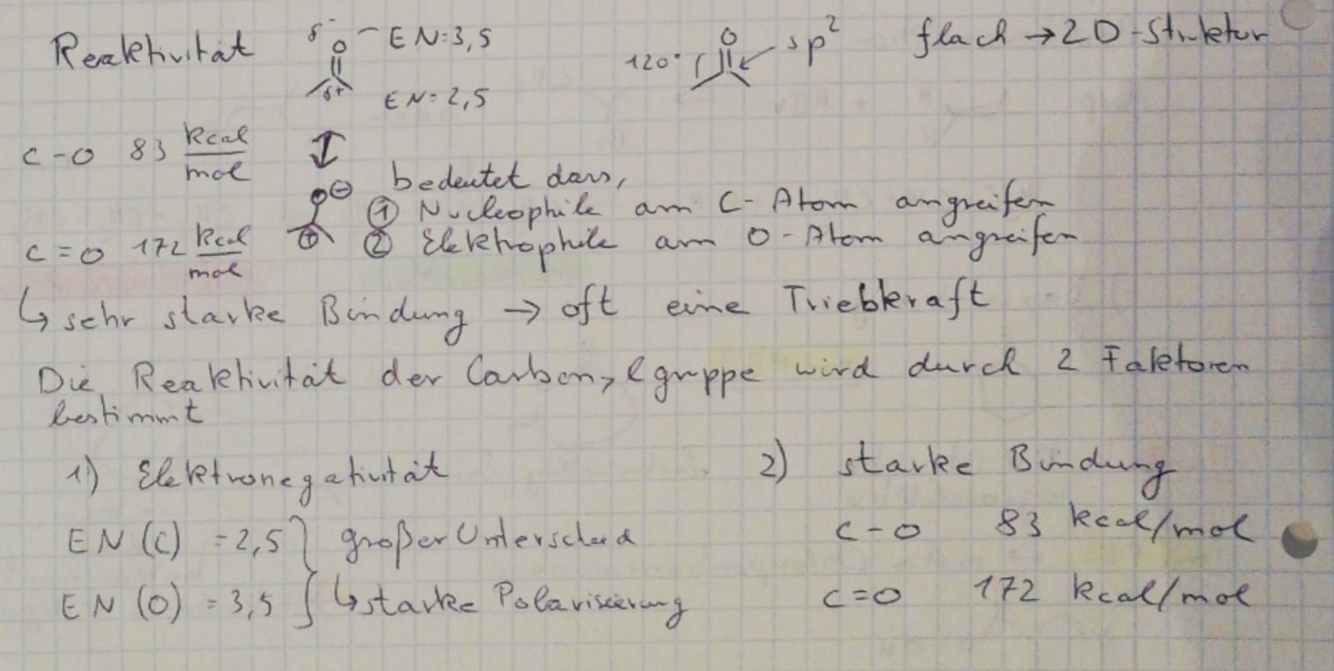 Reaktivität δ⁻ O EN=3,5 δ+ EN=2,5
120° O sp² flach → 2D-Struktur
C-O 83 kcal/mol
↕
O⊖ ⊕ bedeutet dass,
① Nucleophile am C-Atom angreifen
C=O 172 kcal/mol ② Elektrophile am O-Atom angreifen
↳ sehr starke Bindung → oft eine Triebkraft
Die Reaktivität der Carbonylgruppe wird durch 2 Faktoren
bestimmt
1) Elektronegativität 2) starke Bindung
EN (C) = 2,5 } großer Unterschied C-O 83 kcal/mol
EN (O) = 3,5 } ↳ starke Polarisierung C=O 172 kcal/mol